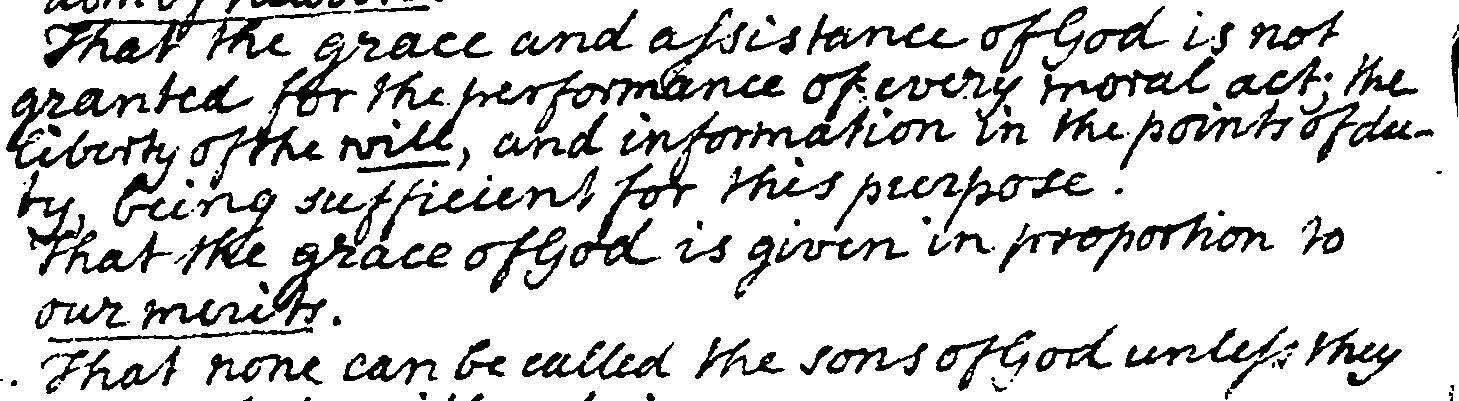 That the grace and aſsistance of God is not
granted for the performance of every moral act; the
liberty of the will, and information in the points of du-
ty, being sufficient for this purpose.
That the grace of God is given in proportion to
our merits.
That none can be called the sons of God unleſs they